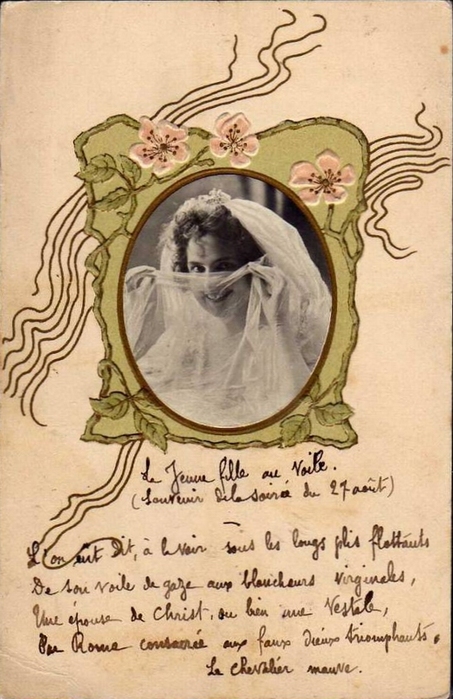 La Jeune fille au Voile.
(Souvenir de la soirée du 27 août)
L'on eut dit, à la voir sous les longs plis flottants
De son voile de gaze aux blancheurs virginales,
Une épouse de Christ, ou bien une Vestale,
Par Rome consacrée aux faux dieux triomphants.
Le Chevalier mauve.